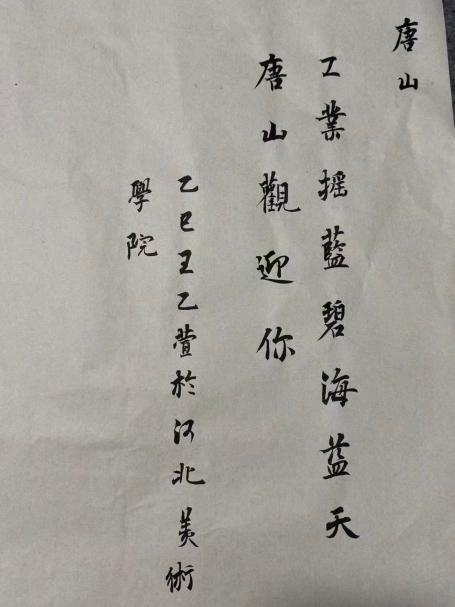 唐山
工業摇藍碧海蓝天
唐山觀迎你
乙巳王乙萱於河北美術
學院